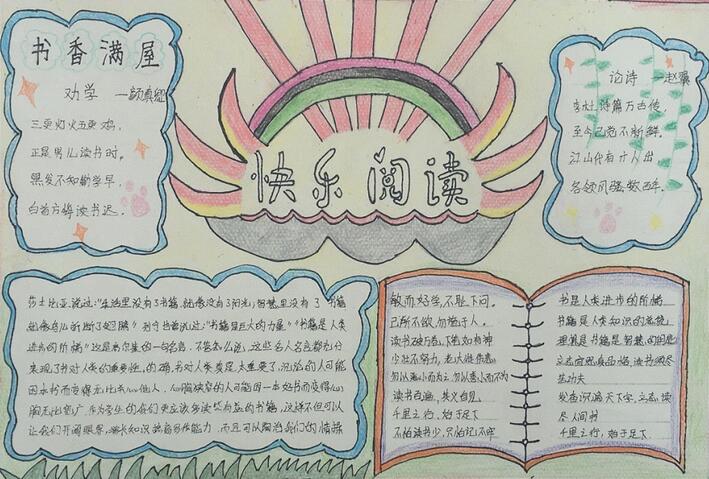 书香满屋
劝学 —颜真卿
三更灯火五更鸡，
正是男儿读书时。
黑发不知勤学早，
白首方悔读书迟。
快乐阅读
论诗 —赵翼
李杜诗篇万古传，
至今已觉不新鲜。
江山代有才人出
各领风骚数百年。
莎士比亚说过："生活里没有了书籍，就像没有了阳光；智慧里没有了书籍
就像鸟儿折断了翅膀" 列宁也曾说过："书籍是巨大的力量""书籍是人类
进步的阶梯"这是高尔基的一句名言，不管怎么说，这些名人名言都充分
表现了书对人类的重要性，的确，书对人类真是太重要了，
因本书而变得无比
胸无比宽广，作为学生的我们更应该多读些有益的书籍，这样不但可以
让我们开阔眼界，增长知识，提高写作能力，而且可以陶冶我们的情操
敏而好学，不耻下问。
己所不欲，勿施于人。
读书破万卷，下笔如有神
少壮不努力，老大徒伤悲
勿以恶小而为之，勿以善小而不为
读书百遍，其义自见
千里之行，始于足下
不怕读书少，只怕记不牢
书是人类进步的阶梯
书籍是人类知识的总统
理想是书籍是智慧，的钥匙
立志宜思真品格，读书须尽
苦功夫
发奋识遍天下字，立志读
尽人间书
千里之行，始于足下